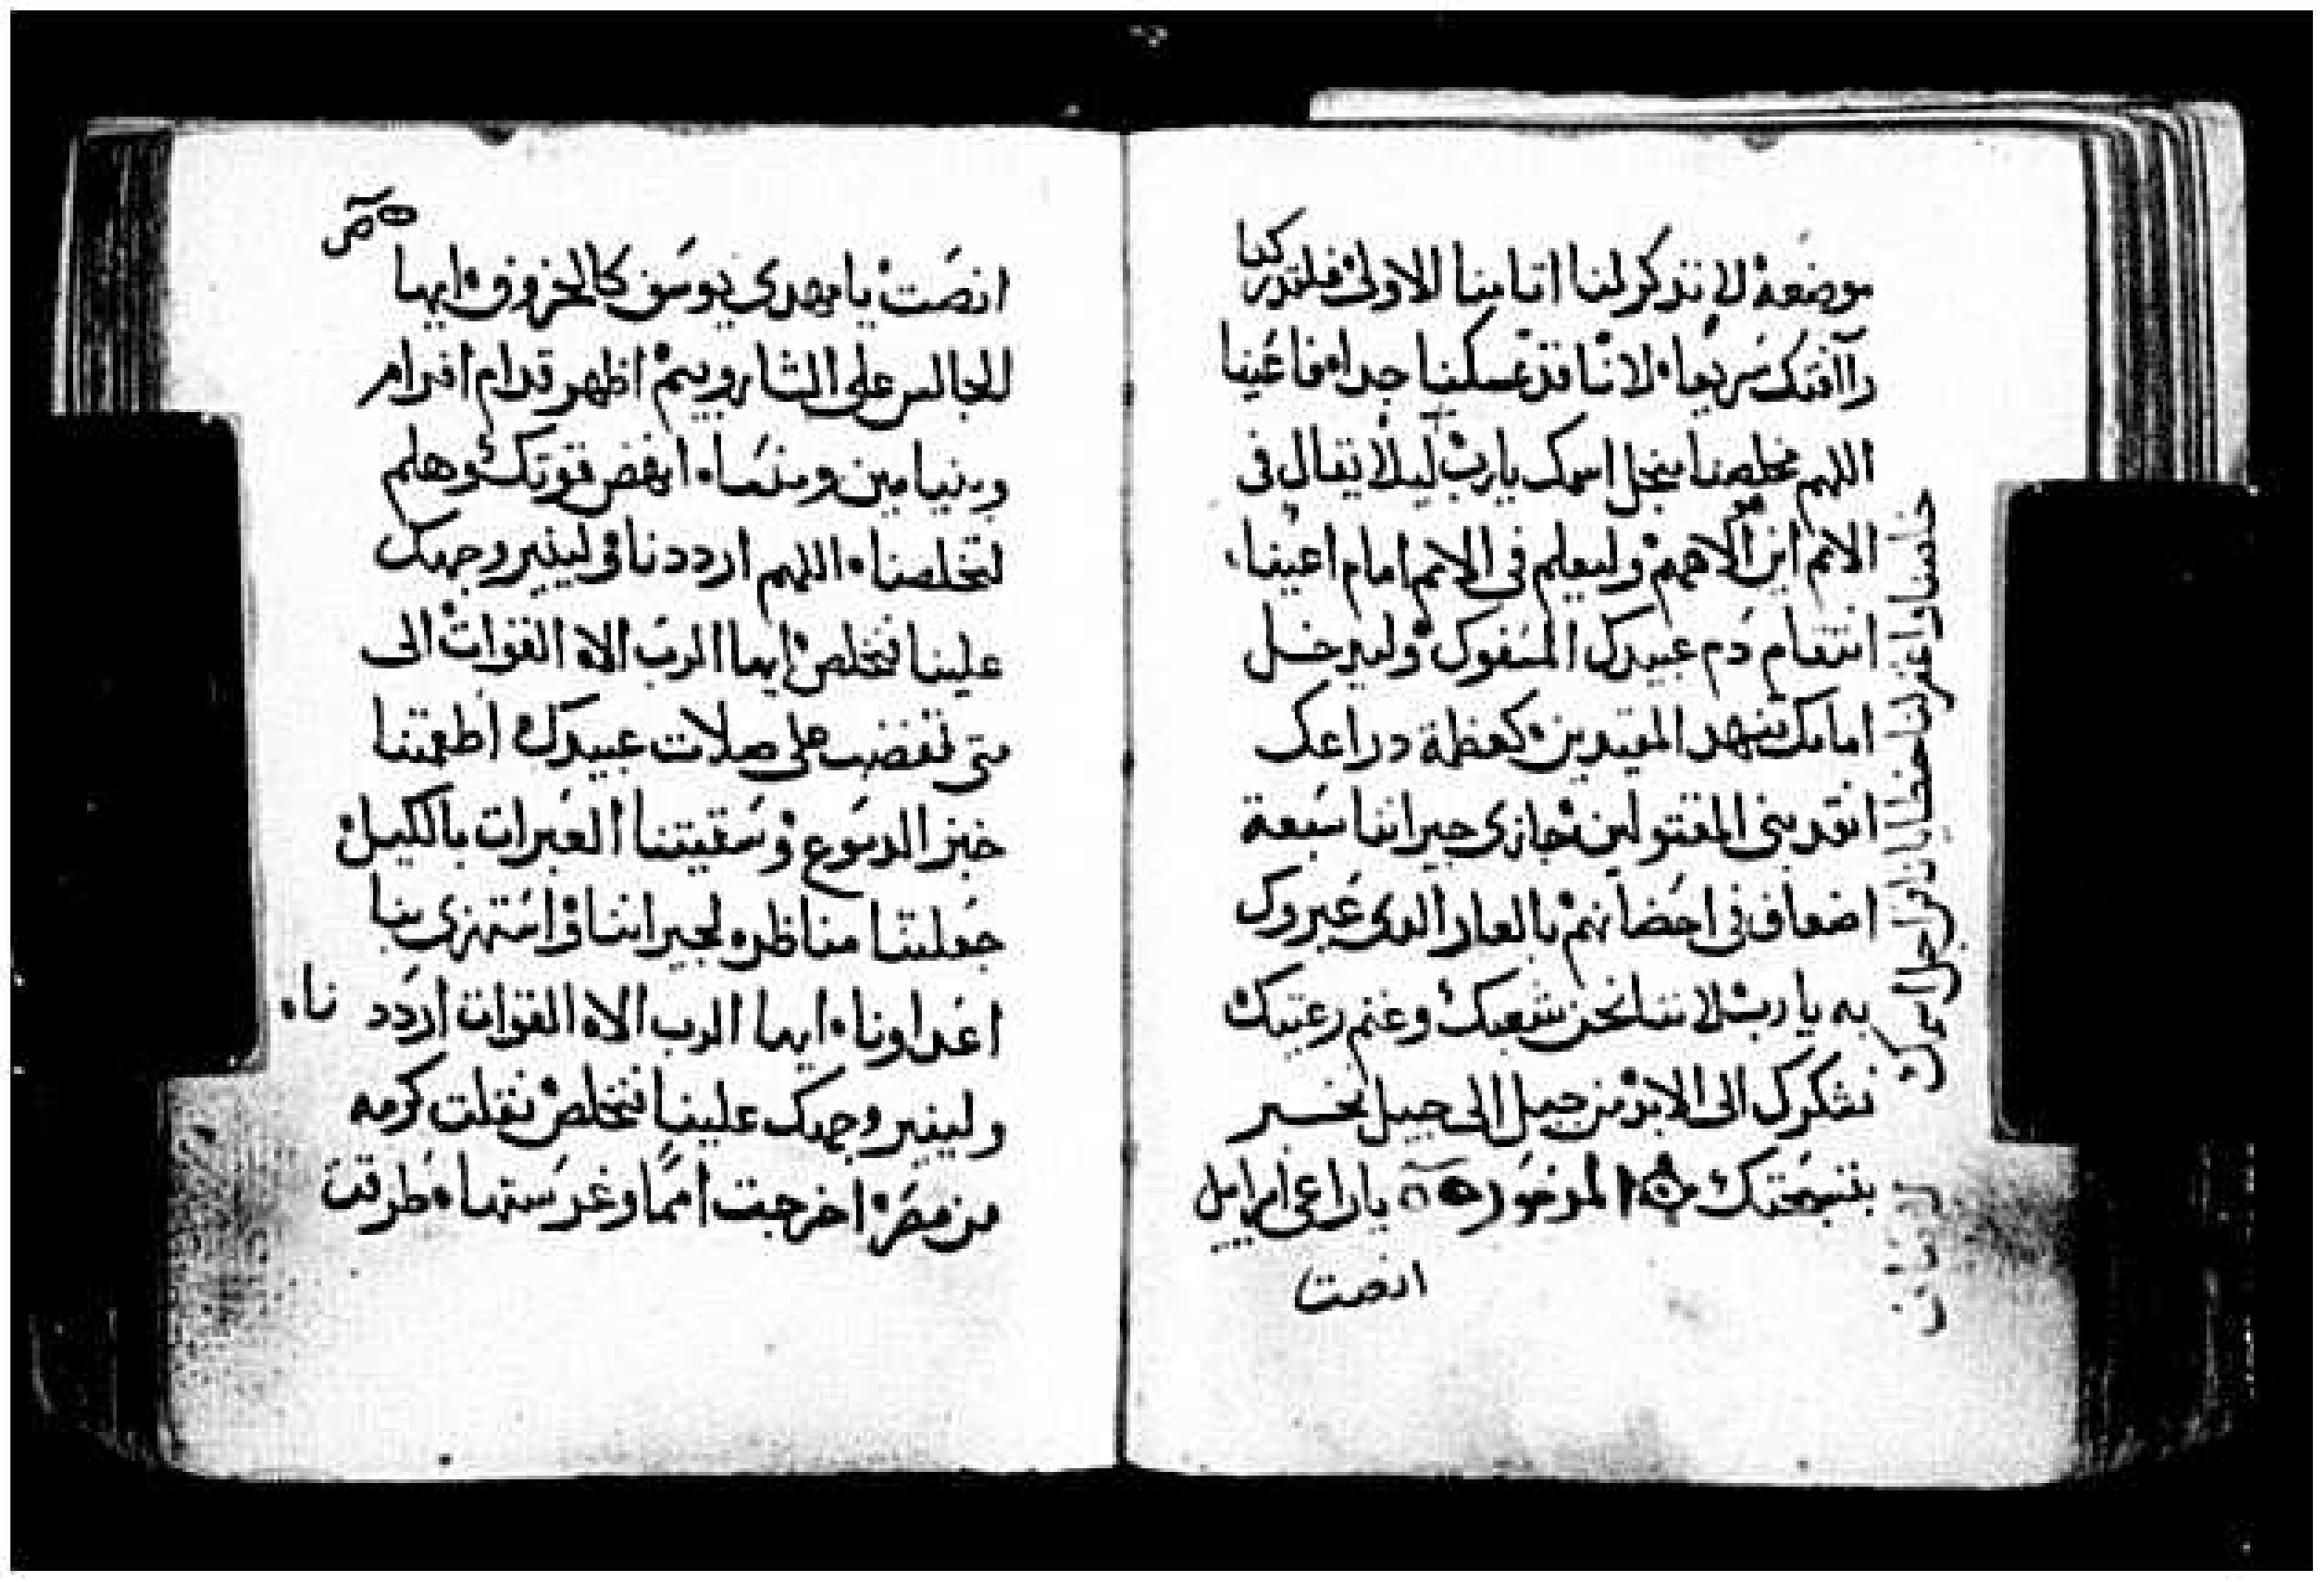 موضعه لا تذكر لنا اثامنا الاولى فلتدركنا
رآافتك سريعا لاننا قد تمسكنا جدا فاعينا
اللهم مخلصنا منجل اسمك يارب ليلا يقال في
الامم اين الاههم وليعلم في الامم امام اعيننا
انتقام دم عبيدك المسفوك وليدخل
امامك تنهد المقيدين كعظمة دراعك
انقد بني المقتولين جازي جيراننا سبعة
اضعاف في احضانهم بالعار الدى عيروك
به يارب لاننا نحن شعبك وغنم رعيتك
نشكرك الى الابد من جيل الى جيل نخبر
بتسبحتك المزمور يا راعي اسراييل
انصت
خلصنا واغفر لنا خطايانا من اجل اسمك
ليلا يقال
انصت يا مهدى يوسف كالخروف ايها
الجالس على الشاروبيم اظهر قدام افرام
وبنيامين ومنسا انهض قوتك وهلم
لتخلصنا اللهم ارددنا ولينير وجهك
علينا فنخلص ايها الرب الاه القوات الى
متى تغضب على صلات عبيدك اطعمتنا
خبز الدموع وسقيتنا العبرات بالكيل
جعلتنا مناظره لجيراننا واستهزى بنا
اعداونا ايها الرب الاه القوات ارددنا
ولينير وجهك علينا فنخلص نقلت كرمه
من مصر اخرجت امما وغرستها طرقت